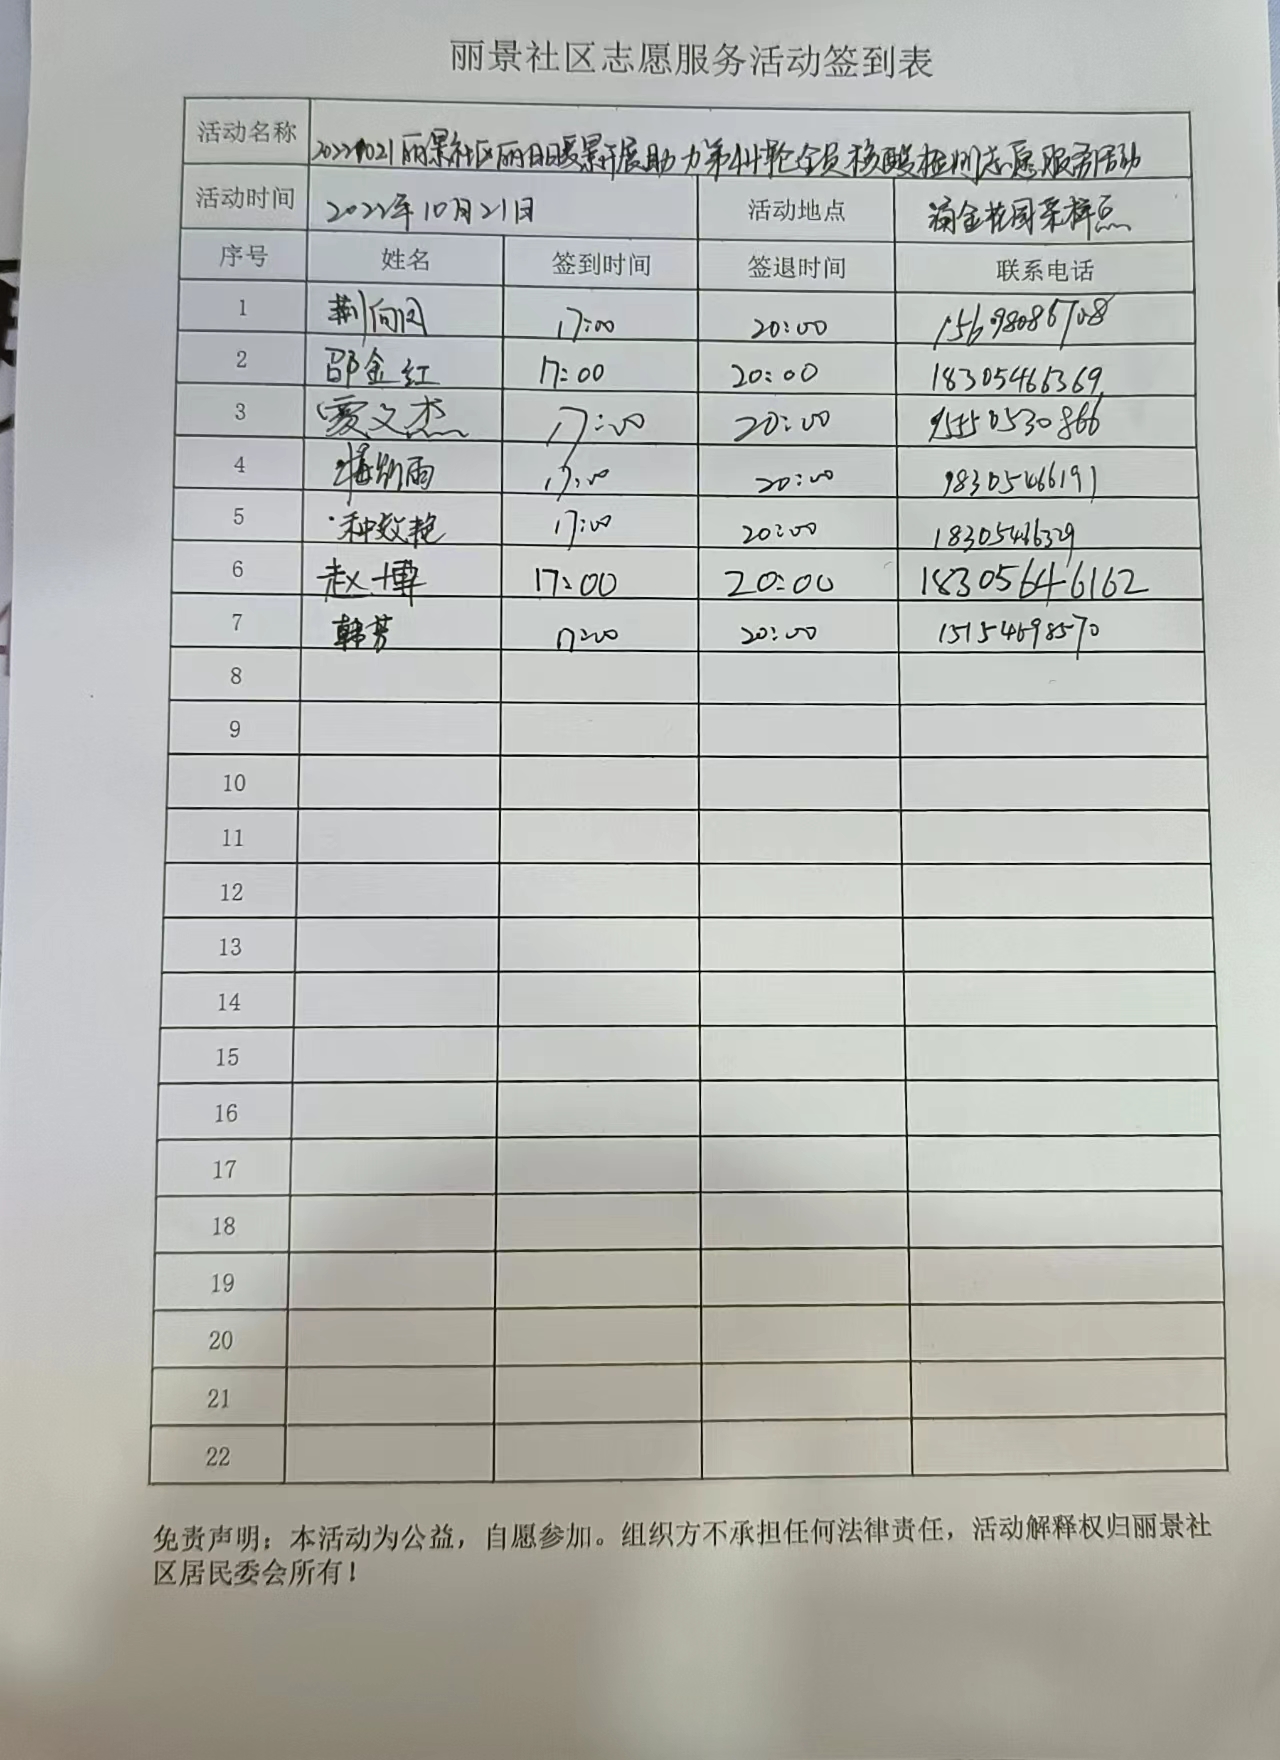 丽景社区志愿服务活动签到表
活动名称 20221021丽景社区丽日暖景开展助力第44轮全员核酸检测志愿服务活动
活动时间 2022年10月21日 活动地点 花园采样点
序号 姓名 签到时间 签退时间 联系电话
1 荆向 17:00 20:00 15698086708
2 邵金红 17:00 20:00 18305466369
3 贾文杰 17:00 20:00 15550530866
4 雨 17:00 20:00 18305466191
5 种效艳 17:00 20:00 18305466329
6 赵博 17:00 20:00 18305646162
7 韩芳 17:00 20:00 15154698570
8
9
10
11
12
13
14
15
16
17
18
19
20
21
22
免责声明：本活动为公益，自愿参加。组织方不承担任何法律责任，活动解释权归丽景社
区居民委会所有！